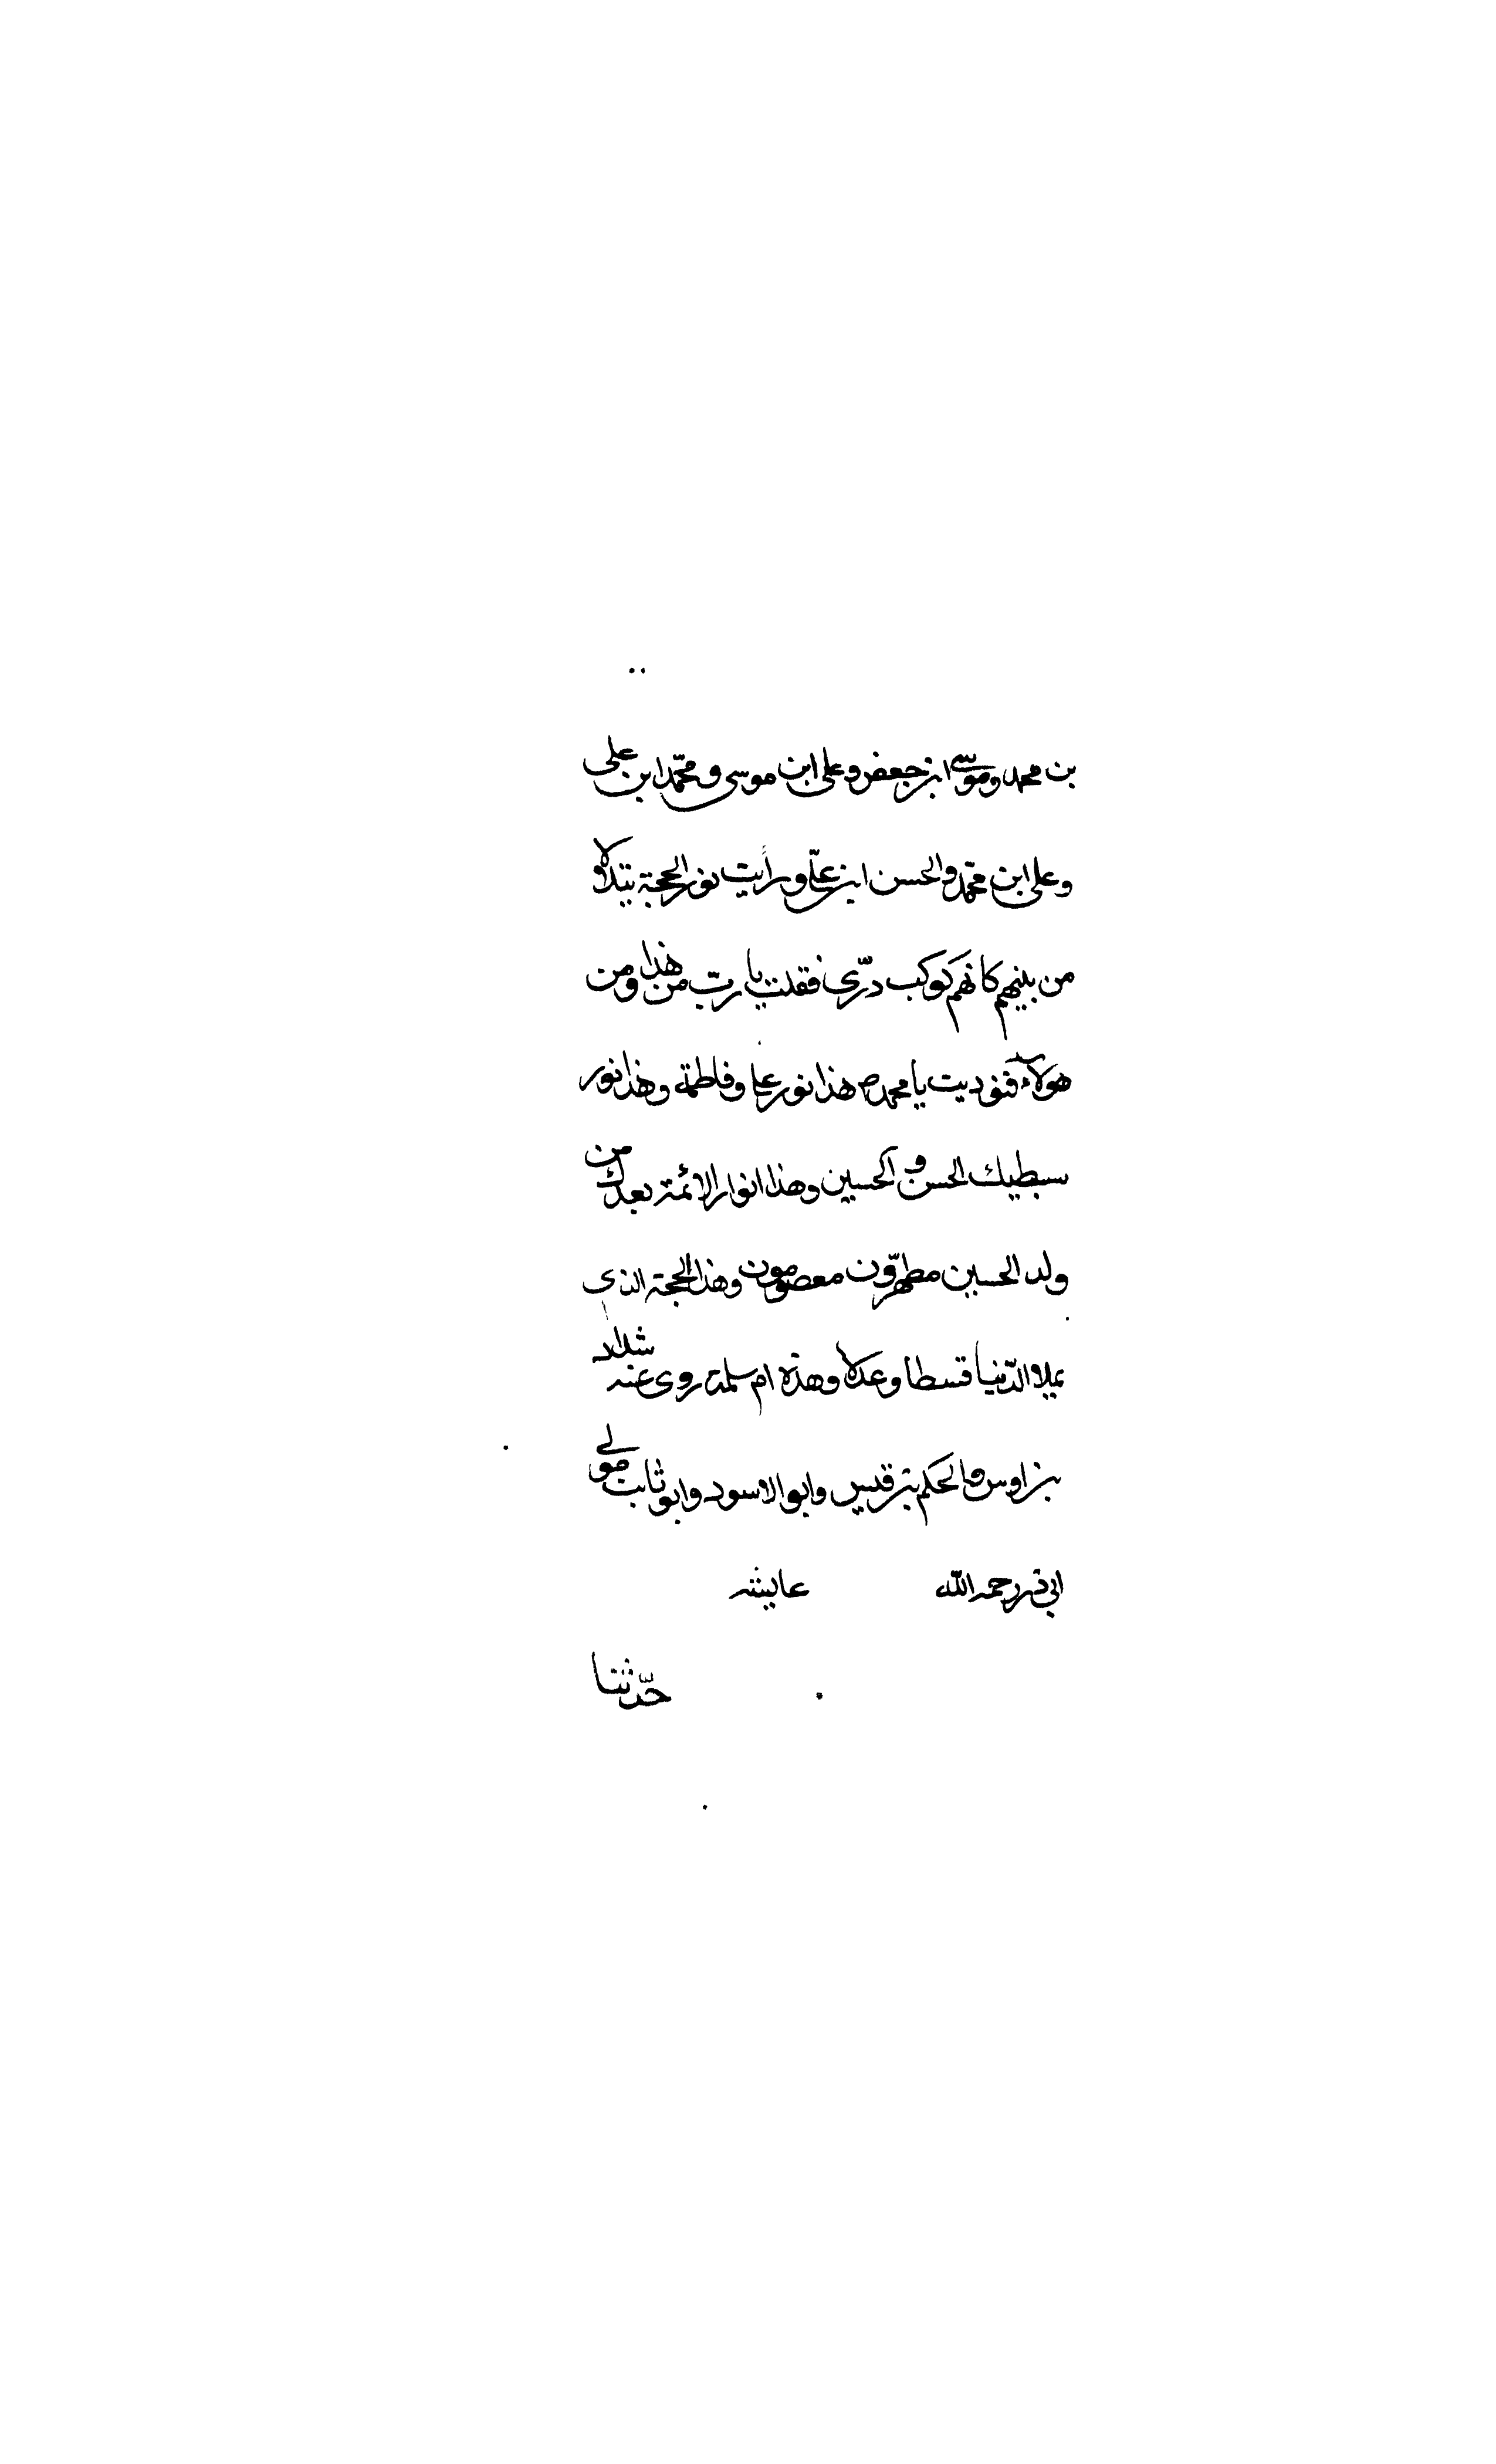 بن محمد وموسى ابن جعفر وعلى ابن موسى ومحمّد ابن على
وعلى ابن محمّد والحسن ابن علىّ ورأيت نور الحجة يتلالأ
من بينهم كانهم كوكب درّى فقلت يا ربّ من هذا ومن
هولآء فنوديت يا محمد ص هذا نور على وفاطمة وهذا نور
سبطيك الحسن و الحسين وهذا انوار الائمة بعدك من
ولد الحسين مطهرّون معصومون وهذا الحجة الذى
يملا الدّنيا قسطا وعدلا وهذه ام سلمة روى عنه شداد
بن اوس والحكم بن قيس وابو الاسود وابو ثابت مولى
ابى ذر رحمه الله عايشه
حدّثنا